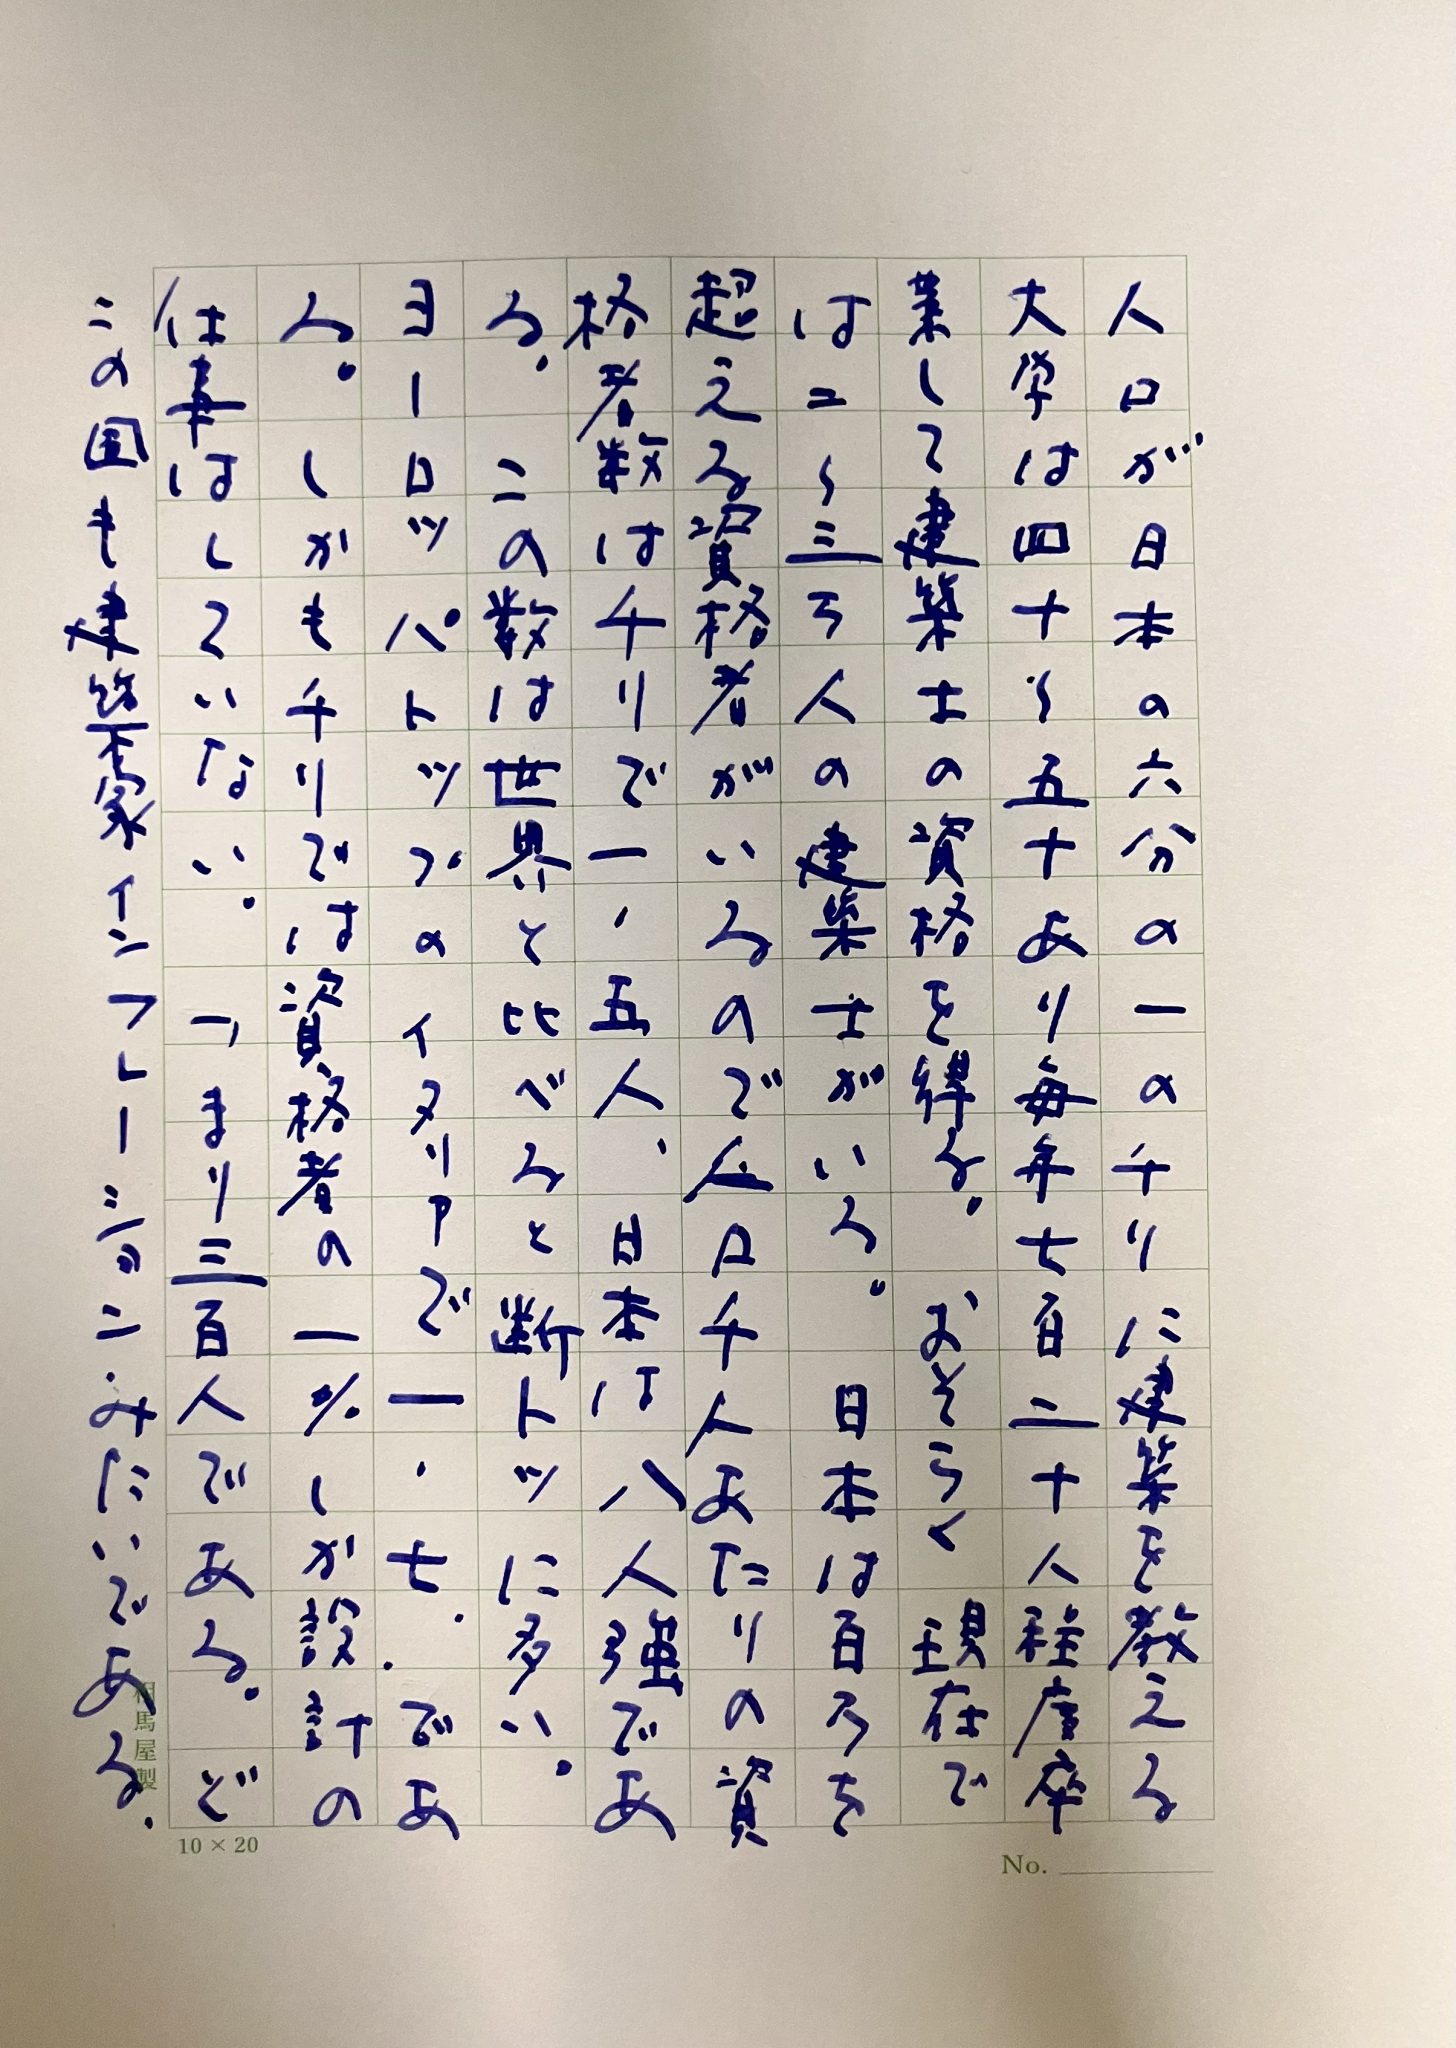 人口が日本の六分の一のチリに建築を教える
大学は四十〜五十あり毎年七百二十人程度卒
業して建築士の資格を得る。おそらく現在で
は二〜三万人の建築士がいる。日本は百万を
超える資格者がいるので人口千人あたりの資
格者数はチリで一・五人、日本は八人強であ
る。この数は世界と比べると断トツに多い。
ヨーロッパトップのイタリアで一・七.であ
る。しかもチリでは資格者の一%しか設計の
仕事はしていない。つまり三百人である。ど
この国も建築家インフレーションみたいである.
相馬屋製
10 × 20
No.